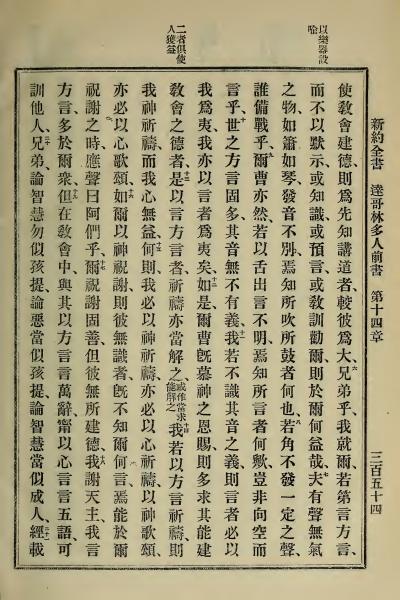 新約全書 達哥林多人前書 第十四章 三百五十四
以樂器設喻
二者俱使人獲益
使敎會建德則爲先知講道者、較彼爲大兄弟乎、我就爾若第言方言、
而不以默示或知識或預言或敎訓勸爾則於爾何益哉夫有聲無氣
之物如簫如琴發音不別焉知所吹所鼓者何也若角不發一定之聲、
誰備戰乎爾曹亦然若以舌出言不明焉知所言者何歟豈非向空而
言乎世之方言固多其音無不有義我若不識其音之義則言者必以
我爲夷我亦以言者爲夷矣如是爾曹旣慕神之恩賜則多求其能建
敎會之德者是以言方言者祈禱亦當解之或作當求能解之我若以方言祈禱則
我神祈禱而我心無益何則我必以神祈禱亦必以心祈禱以神歌頌、
亦必以心歌頌如爾以神祝謝則彼無識者旣不知爾何言焉能於爾
祝謝之時應聲曰阿們乎爾祝謝固善但彼無所建德我謝天主我言
方言多於爾衆但在敎會中與其以方言言萬辭甯以心言言五語可
訓他人兄弟論智慧勿似孩提論惡當似孩提論智慧當似成人經載